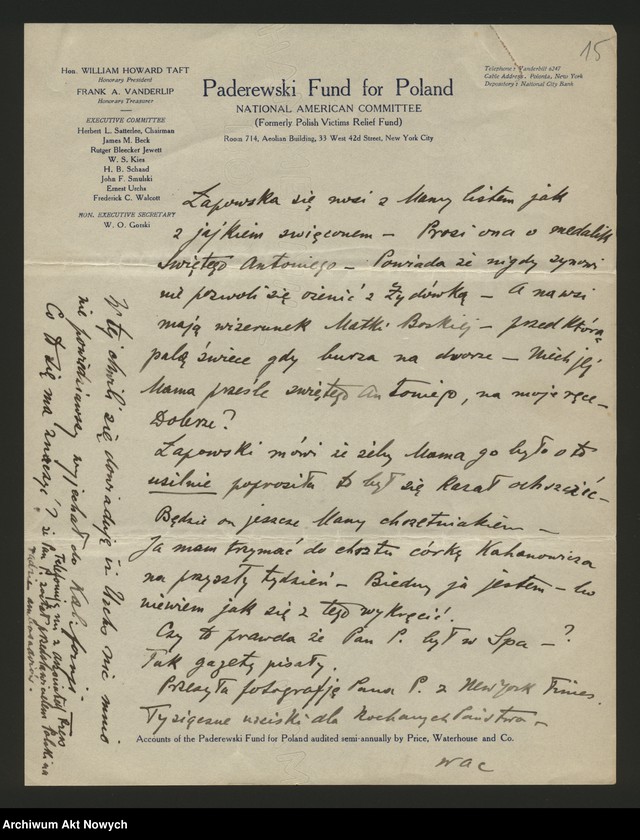 15
Hon. WILLIAM HOWARD TAFT
Honorary President
FRANK A. VANDERLIP
Honorary Treasurer
EXECUTIVE COMMITTEE
Herbert L. Satterlee, Chairman
James M. Beck
Rutger Bleecker Jewett
W. S. Kies
H. B. Schaad
John F. Smulski
Ernest Urchs
Frederick C. Walcott
HON. EXECUTIVE SECRETARY
W. O. Gorski
Paderewski Fund for Poland
NATIONAL AMERICAN COMMITTEE
(Formerly Polish Victims Relief Fund)
Room 714, Aeolian Building, 33 West 42d Street, New York City
Telephone: Vanderbilt 6247
Cable Address, Polonia, New York
Depository: National City Bank
Łapowska się nosi z Mamy listem jak
z jajkiem święconem – Prosi ona o medalik
Świętego Antoniego – Powiada że nigdy synowi
nie pozwoli się ożenić z Żydówką – A na wsi
mają wizerunek Matki Boskiej – przed którą
palą świece gdy burza na dworze – Niech jej
Mama prześle świętego Antoniego, na moje ręce –
Dobrze?
Łapowski mówi że żeby Mama go była o to
usilnie poprosiła to był się kazał ochrzcić –
Będzie on jeszcze Mamy chrzestniakiem –
Ja mam trzymać do chrztu córkę Kahanowicza
na przyszły tydzień – Biedny ja jestem – bo
niewiem jak się z tego wykręcić.
Czy to prawda że Pan P. był w Spa – ?
Tak gazety pisały.
Przesyła fotografję Pana P. z New York Times.
Tysiączne uściski dla Kochanych Państwa –
wac
W tej chwili się dowiaduję iż Urchs nic mnie
nie powiedziawszy wyjechał do Kalifornji –
Co to się ma znaczyć?
Telefonują mi z Associated Press
że Pan P. został przedstawicielem Polski na
radzie ambasadorów –
Accounts of the Paderewski Fund for Poland audited semi-annually by Price, Waterhouse and Co.
Archiwum Akt Nowych